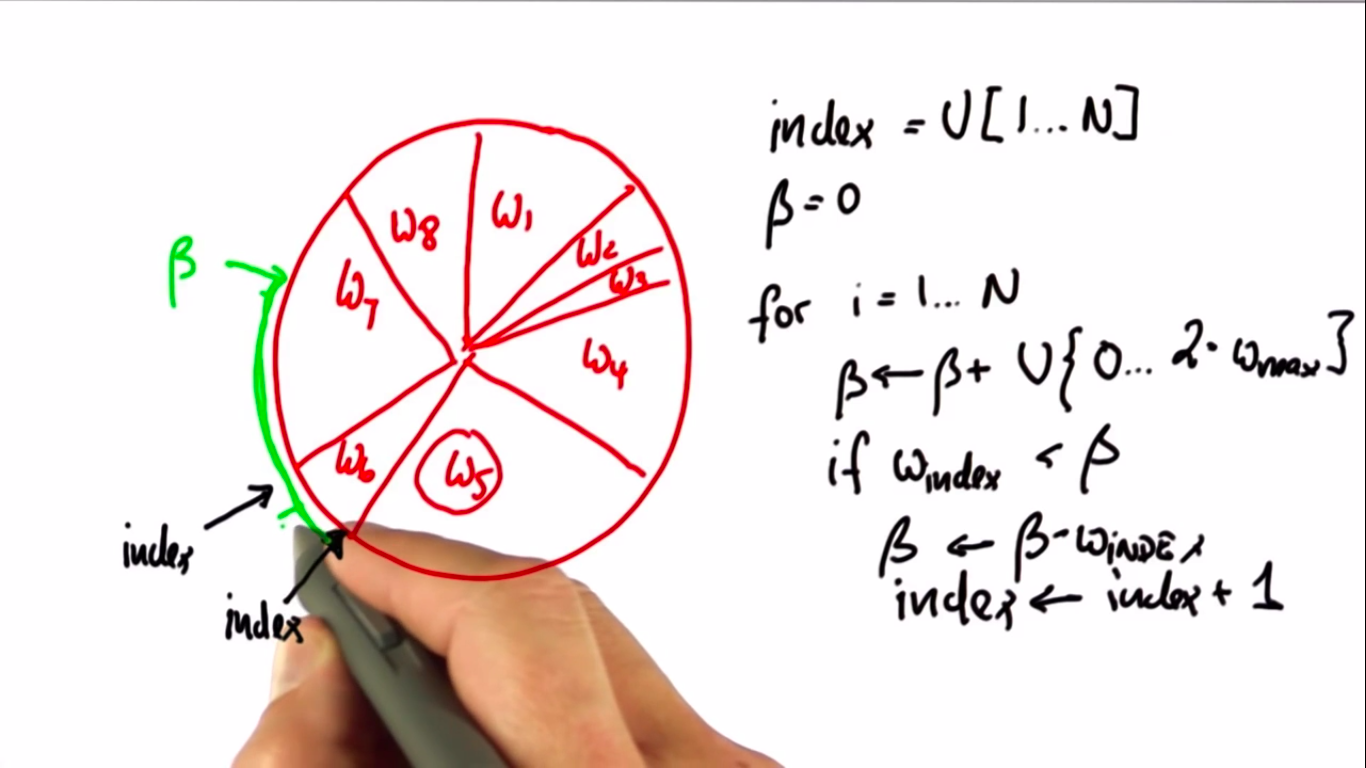 β
ω8
ω1
ω2
ω3
ω7
ω4
ω6
ω5
index
index
index = U[1... N]
β = 0
for i = 1... N
β ← β + U{0... 2· ωmax}
if ωindex < β
β ← β - ωINDEX
index ← index + 1